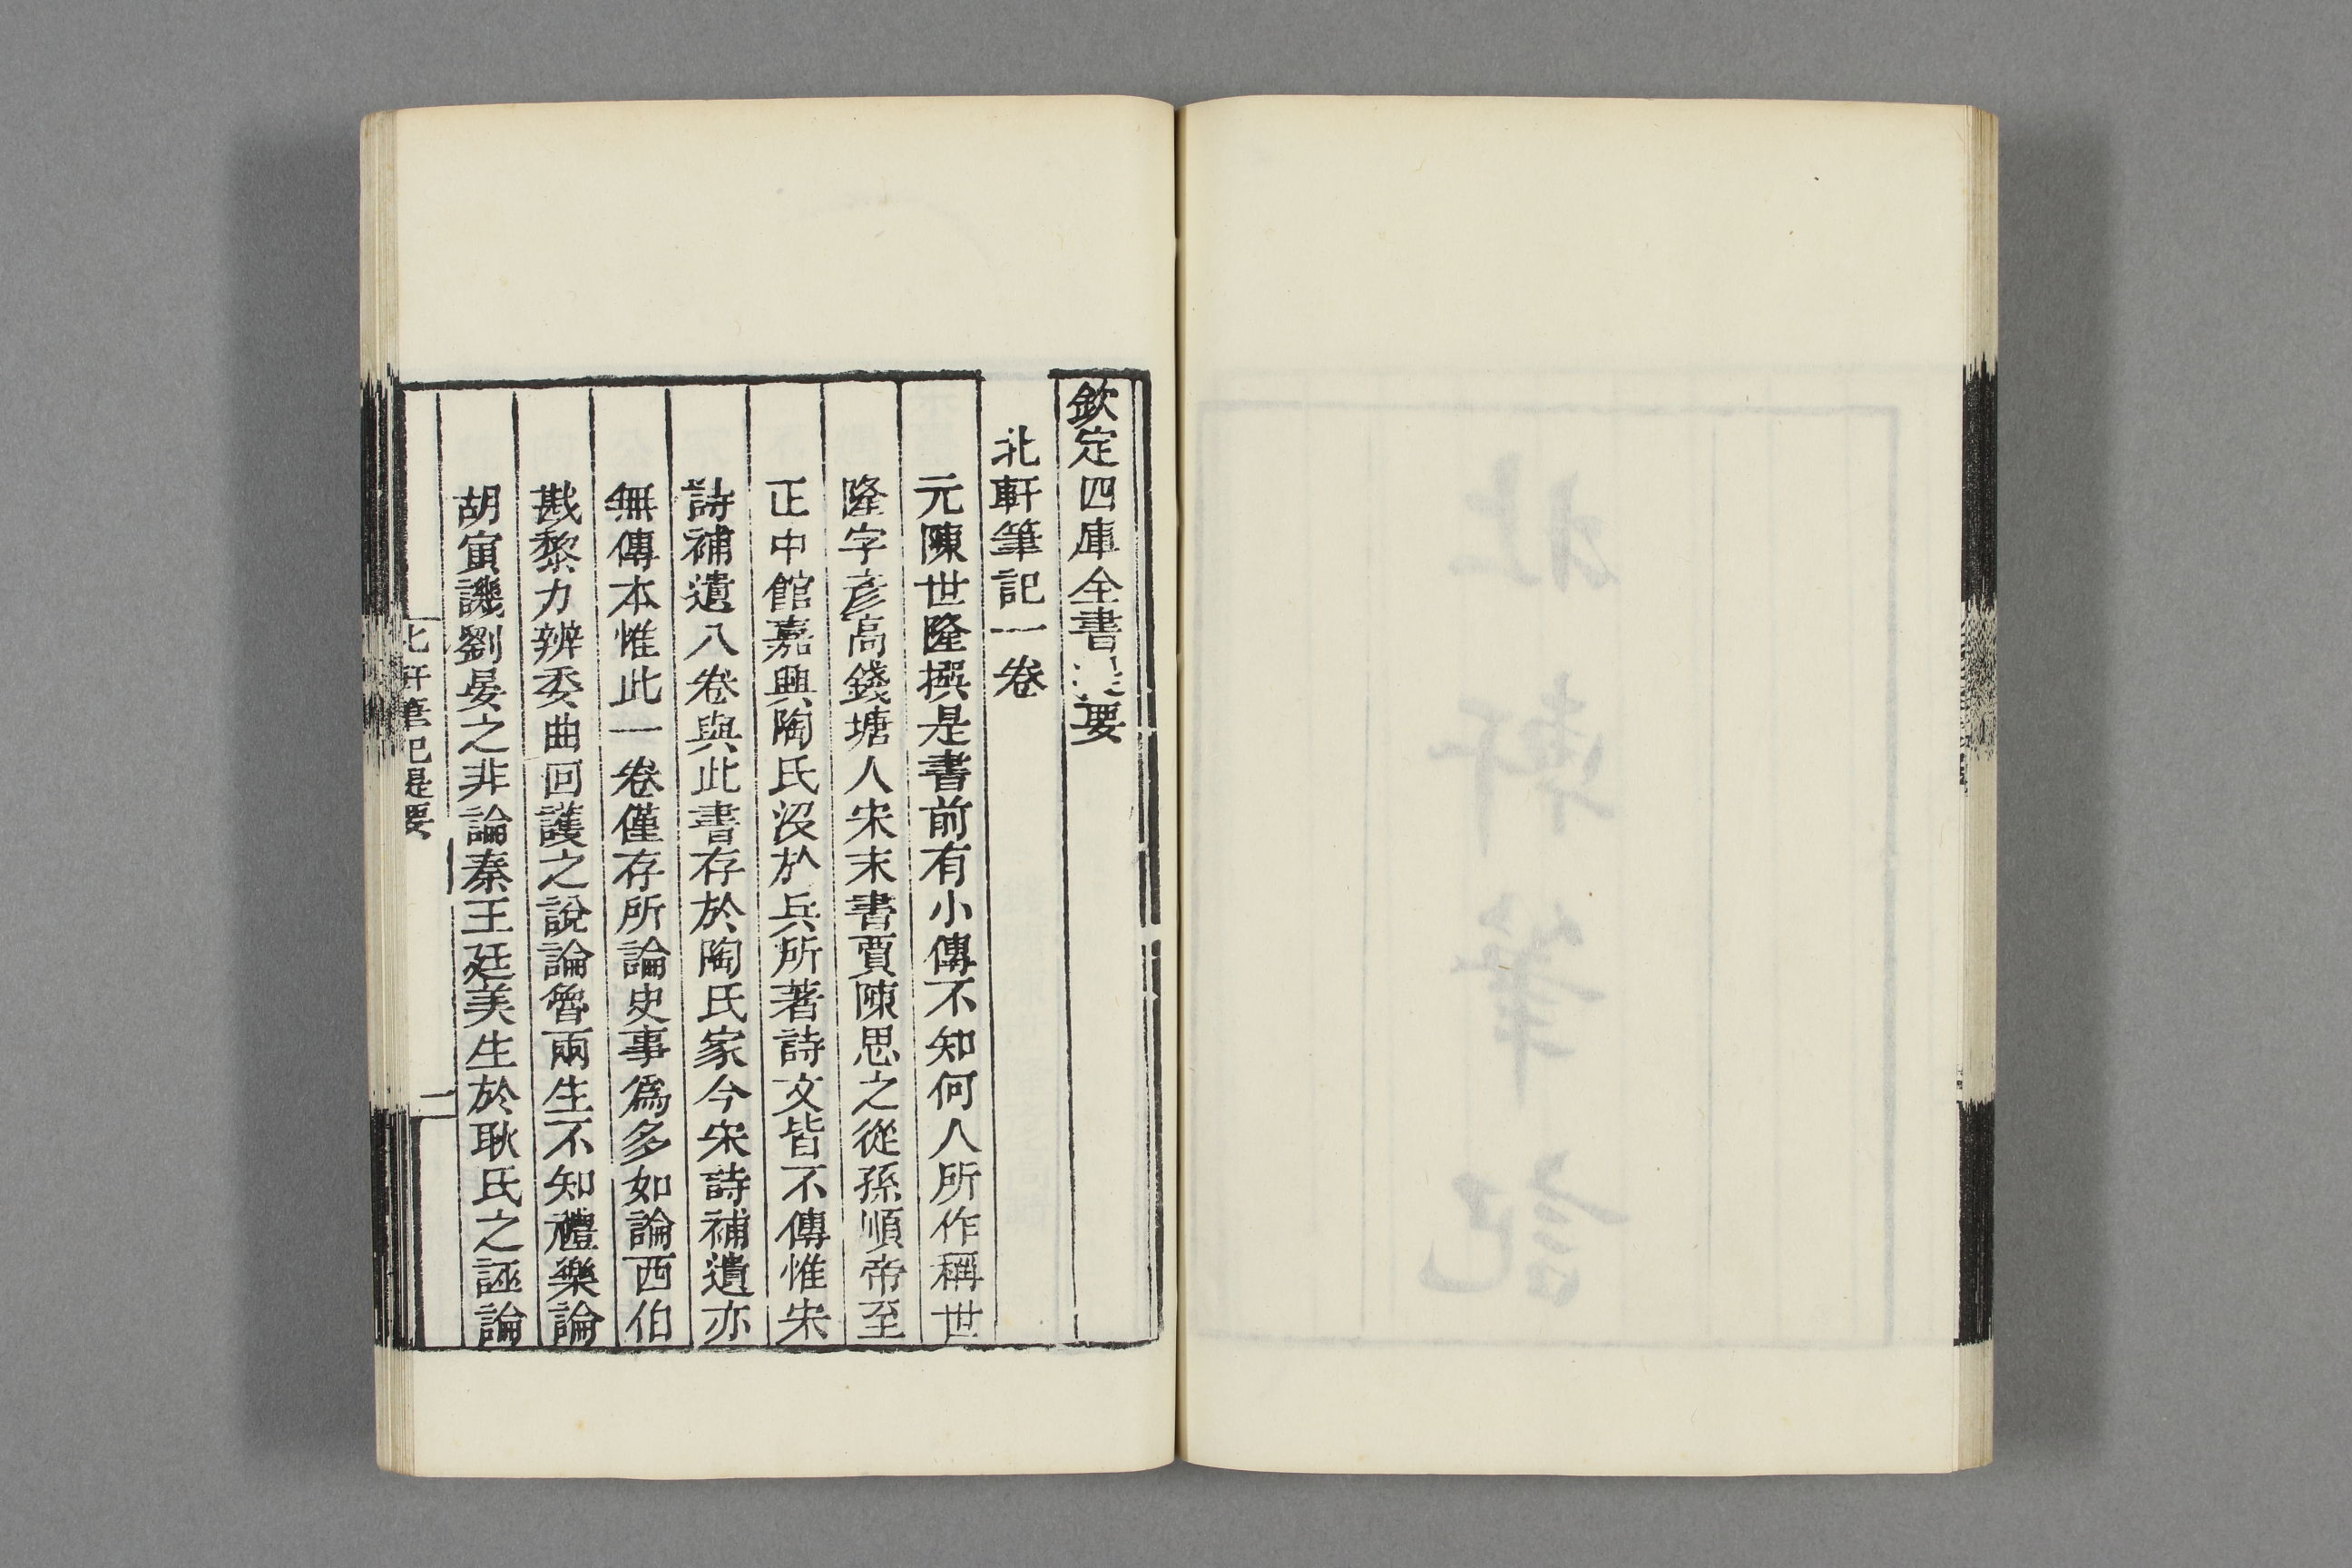 欽定四庫全書提要
北軒筆記一卷
元陳世隆撰是書前有小傳不知何人所作稱世
隆字彥高錢塘人宋末書賈陳思之從孫順帝至
正中館嘉興陶氏沒於兵所著詩文皆不傳惟宋
詩補遺八卷與此書存於陶氏家今宋詩補遺亦
無傳本惟此一卷僅存所論史事爲多如論西伯
戡黎力辨委曲回護之說論魯兩生不知禮樂論
胡寅譏劉晏之非論秦王廷美生於耿氏之誣論
北軒筆記提要
二
北軒筆記